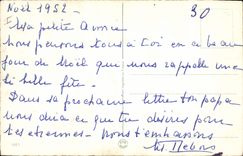 Noël 1952 -
30
Ma petite Annie
Nous pensons tous à toi en ce beau
jour de Noël que nous rappelle une
si belle fête.
Dans sa prochaine lettre ton papa
nous dira ce que tu désires pour
tes étrennes - nous t'embrassons
les